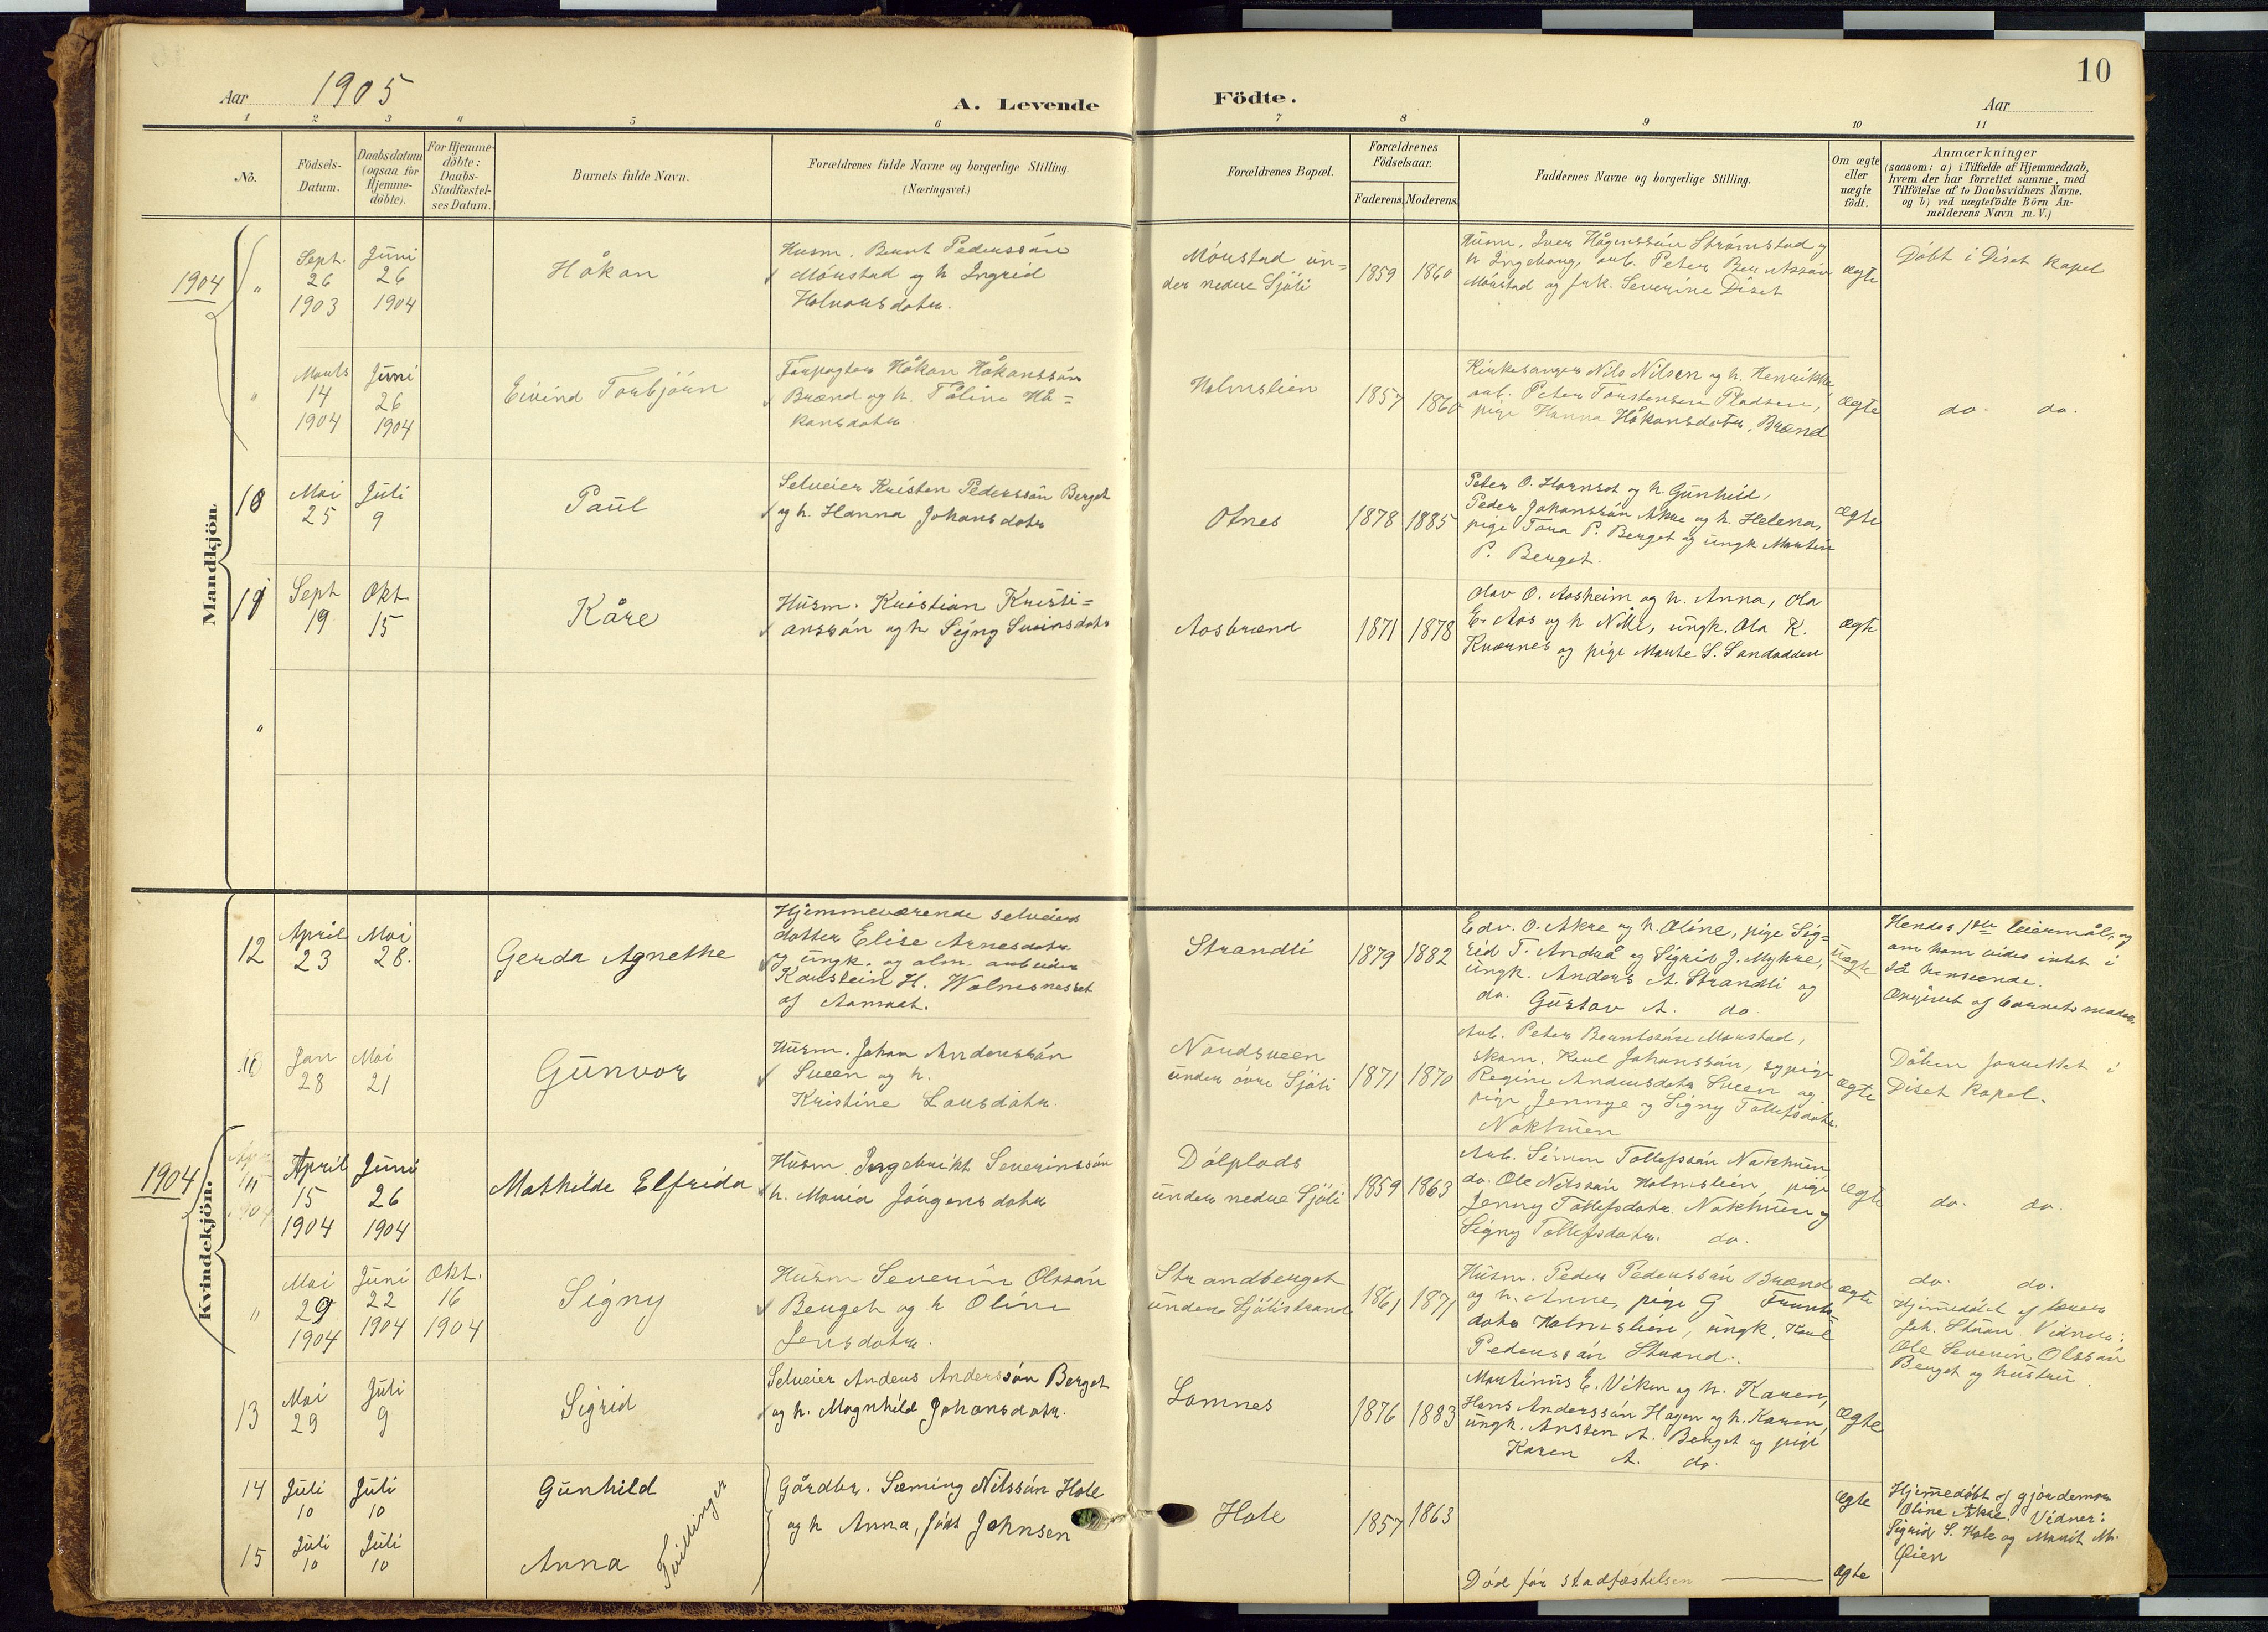 10
Aar 1905
A. Levende
Födte.
Aar
1 2 3 4 5 6 7 8 9 10 11
No.
Födsels-
Datum.
Daabsdatum
(ogsaa for
Hjemme-
döbte).
For Hjemme-
döbte:
Daabs-
Stadfæstel-
ses Datum.
Barnets fulde Navn.
Forældrenes fulde Navne og borgerlige Stilling.
(Næringsvei.)
Forældrenes Bopæl.
Forældrenes
Födselsaar.
Faderens. Moderens.
Faddernes Navne og borgerlige Stilling.
Om ægte
eller
uægte
födt.
Anmærkninger
(saasom: a) i Tilfælde af Hjemmedaab,
hvem der har forrettet samme, med
Tilföielse af to Daabsvidners Navne.
og b) ved uægtefödte Börn An-
melderens Navn m. V.)
Mandkjön.
1904
"
Sept.
26
1903
Juni
26
1904
Håkon
Husm. Bernt Pederssön
Mörstad og h Ingrid
Halvorsdatr.
Mörstad un=
der nedre Sjöli
1859
1860
Husm. Iver Hågenssön Strömstad og
h Ingeborg, arb. Peter Berntssön
Mörstad og frk. Severine Diset
ægte
Döbt i Diset Kapel
"
Marts
14
1904
Juni
26
1904
Eivind Torbjörn
Forpagter Håkon Håkonssön
Brænd og h. Toline Hå=
konsdatr
Holmslien
1857
1860
Kirkesanger Nils Nilsen og h. Henrikke
arb. Peter Torstensen Pladsen,
pige Hanna Håkonsdatr. Brænd
ægte
do. do.
10
Mai
25
Juli
9
Paul
Selveier Kristen Pederssön Berget
og h. Hanna Johansdatr
Otnes
1878
1885
Peter O. Hornset og h. Gunhild,
Peder Johanssön Akre og h. Helena,
pige Tora P. Berget og ungk Martin
P. Berget.
ægte
11
Sept
19
Okt.
15
Kåre
Husm. Kristian Kristi=
anssön og h Signy Sveinsdatr
Aosbrænd
1871
1878
Olav O. Aosheim og h. Anna, Ola
E. Aos og h Nille, ungk. Ola K.
Kværnes og pige Marte S. Sandodden
ægte
"
Kvindekjön.
12
April
23
Mai
28.
Gerda Agnethe
Hjemmeværende selveiers
datter Elise Arnesdatr
og ungk. og alm. arbeider
Karstein H. Holmsnesset
af Aamot.
Strandli
1879
1882
Edv. O. Akre og h. Oline, pige Sig=
rid T. Andrå og Sigrid J. Mykre,
ungk. Anders A. Strandli og
do. Gustav A. do.
Uægte
Hendes 1ste leiermål, og
om ham vides intet i
så henseende.
Angivet af barnets moder.
10
Jan
28
Mai
21
Gunvor
Husm. Johan Anderssön
Sveen og h.
Kristine Larsdatr.
Nordsveen
under övre Sjöli
1871
1870
Arb. Peter Berntssön Morstad,
skom. Karl Johanssön, sypige
Regine Andersdatr Sveen og
pige Jennye og Signy Tollefsdatr.
Nakhuen
ægte
Dåben forrettet i
Diset Kapel.
1904
April
15
1904
Juni
26
1904
Mathilde Elfrida
Husm. Ingebrikt Severinssön
h. Maria Jörgensdatr
Dölplads
under nedre Sjöli
1859
1863
Arb. Simen Tollefssön Nakhuen
do. Ole Nilssön Holmslien, pige
Jenny Tollefsdatr. Nakhuen og
Signy Tollefsdatr. do.
ægte
do. do.
"
Mai
29
1904
Juni
22
1904
Okt.
16
1904
Signy
Husm Severin Olssön
Berget og h Oline
Jensdatr.
Strandberget
under Sjölistrand
1861
1871
Husm. Peder Pederssön Brænd
og h. Anne, pige G
datr Holmslien, ungk. Karl
Pederssön Strand.
ægte
do. do.
Hjemedöbt af lærer
Joh. Vidner:
Ole Severin Olssön
Berget og hustru.
13
Mai
29
Juli
9
Sigrid
Selveier Anders Anderssön Berget
og h. Magnhild Johansdatr.
Lomnes
1876
1883
Martinus E. Viken og h. Karen,
Hans Anderssön Hagen og h. Karen,
ungk. Ansten A. Berget og pige
Karen A. do.
ægte
14
Juli
10
Juli
10
Gunhild
Gårdbr. Sæming Nilssön Hole
og h Anna, född Johnsen
Hole
1857
1863
ægte
Hjemedöbt af gjordemor
Oline Akre. Vidner:
Sigrid S. Hole og Marit M.
Öien
15
Juli
10
Juli
10
Anna
Tvillinger
Död för stadfæstelsen
ægte